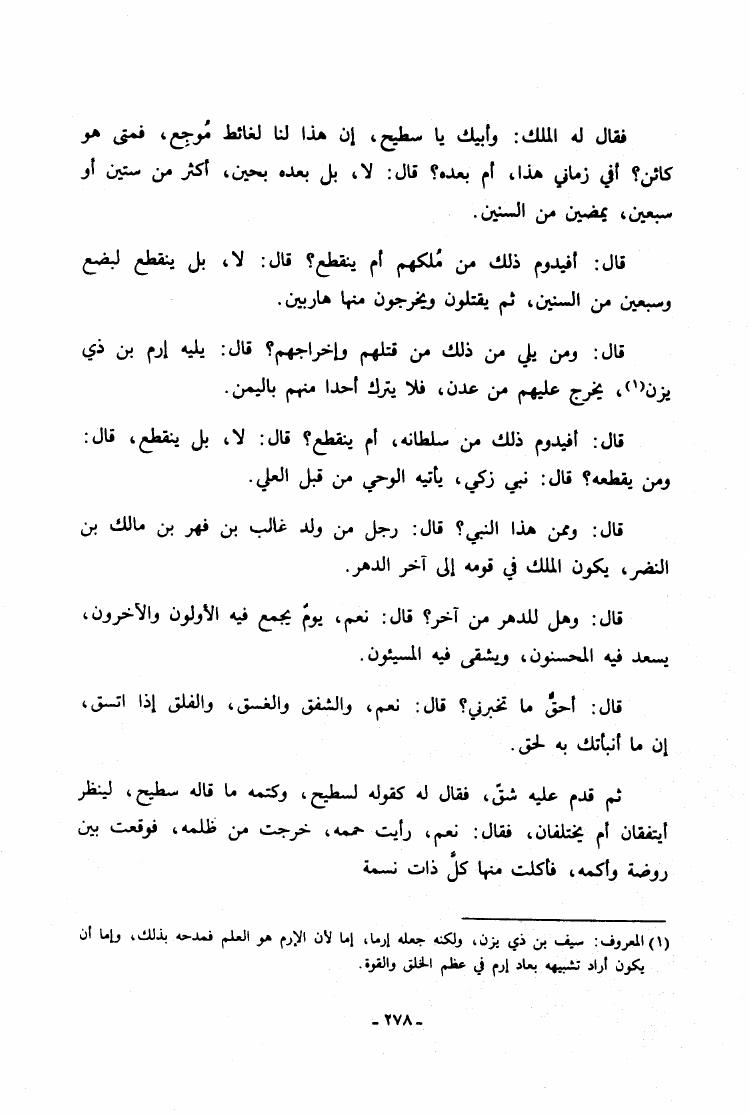 فقال له الملك: وأبيك يا سطيح، إن هذا لنا لغائظ مُوجِع، فمتى هو
كائن؟ أفي زماني هذا، أم بعده؟ قال: لا، بل بعده بحين، أكثر من ستين أو
سبعين، يمضين من السنين.
قال: أفيدوم ذلك من مُلكهم أم ينقطع؟ قال: لا، بل ينقطع لبضع
وسبعين من السنين، ثم يقتلون ويخرجون منها هاربين.
قال: ومن يلي من ذلك من قتلهم وإخراجهم؟ قال: يليه إرم بن ذي
يزن(١)، يخرج عليهم من عدن، فلا يترك أحدا منهم باليمن.
قال: أفيدوم ذلك من سلطانه، أم ينقطع؟ قال: لا، بل ينقطع، قال:
ومن يقطعه؟ قال: نبي زكي، يأتيه الوحي من قبل العلي.
قال: وممن هذا النبي؟ قال: رجل من ولد غالب بن فهر بن مالك بن
النضر، يكون الملك في قومه إلى آخر الدهر.
قال: وهل للدهر من آخر؟ قال: نعم، يومٌ يجمع فيه الأولون والآخرون،
يسعد فيه المحسنون، ويشقى فيه المسيئون.
قال: أحقٌّ ما تخبرني؟ قال: نعم، والشفق والغسق، والفلق إذا اتسق،
إن ما أنبأتك به لحق.
ثم قدم عليه شقّ، فقال له كقوله لسطيح، وكتمه ما قاله سطيح، لينظر
أيتفقان أم يختلفان، فقال: نعم، رأيت حممه، خرجت من ظلمه، فوقعت بين
روضة وأكمه، فأكلت منها كلَّ ذات نسمة
(١) المعروف: سيف بن ذي يزن، ولكنه جعله إرما، إما لأن الإرم هو العلم فمدحه بذلك، وإما أن
يكون أراد تشبيهه بعاد إرم في عظم الخلق والقوة.
- ٢٧٨ -